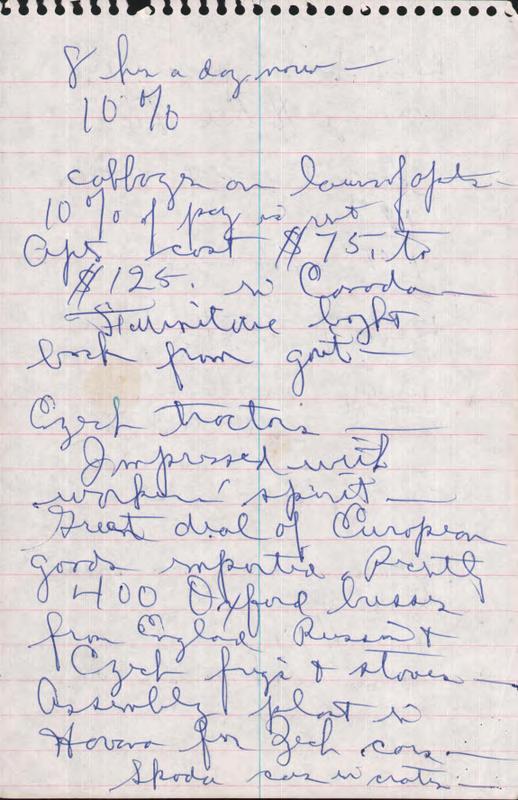 8 hrs a day now —
10%
cabbages on lawns of apts —
10% of pay is rent
Apts cost $75. to
$125. in Canada —
Furniture boght
back from govt —
Czech tractors —
Impressed with
workers' spirit —
Great deal of European
goods imported. Recently
400 Oxford busses
from England Russian &
Czech frigs & stoves —
Assembly plant in
Havana for Zech cars —
Skoda cars in crates —